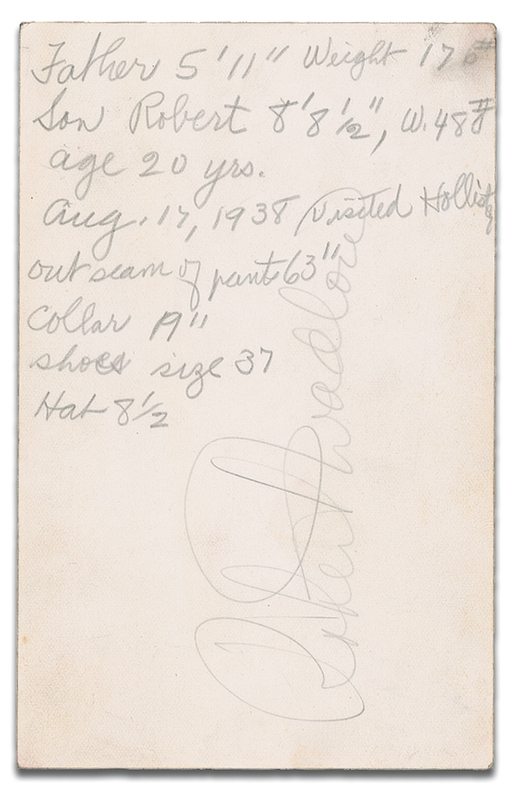 Father 5'11" Weight 176#
Son Robert 8'8½", W. 48#
age 20 yrs.
Aug. 17, 1938 visited Hollister
out seam of pants 63"
Collar 19"
shoes size 37
Hat 8½
Robert Wadlow